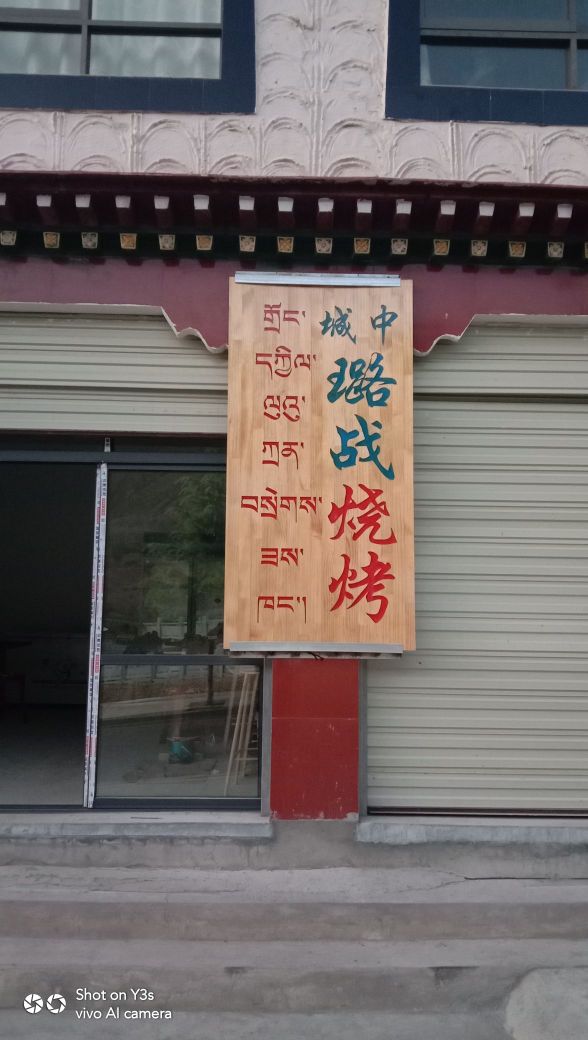 གྲོང་
དཀྱིལ་
ལུའུ་
ཀྲན་
བསྲེགས་
ཟས་
ཁང་།
城中
璐战烧烤
Shot on Y3s
vivo AI camera